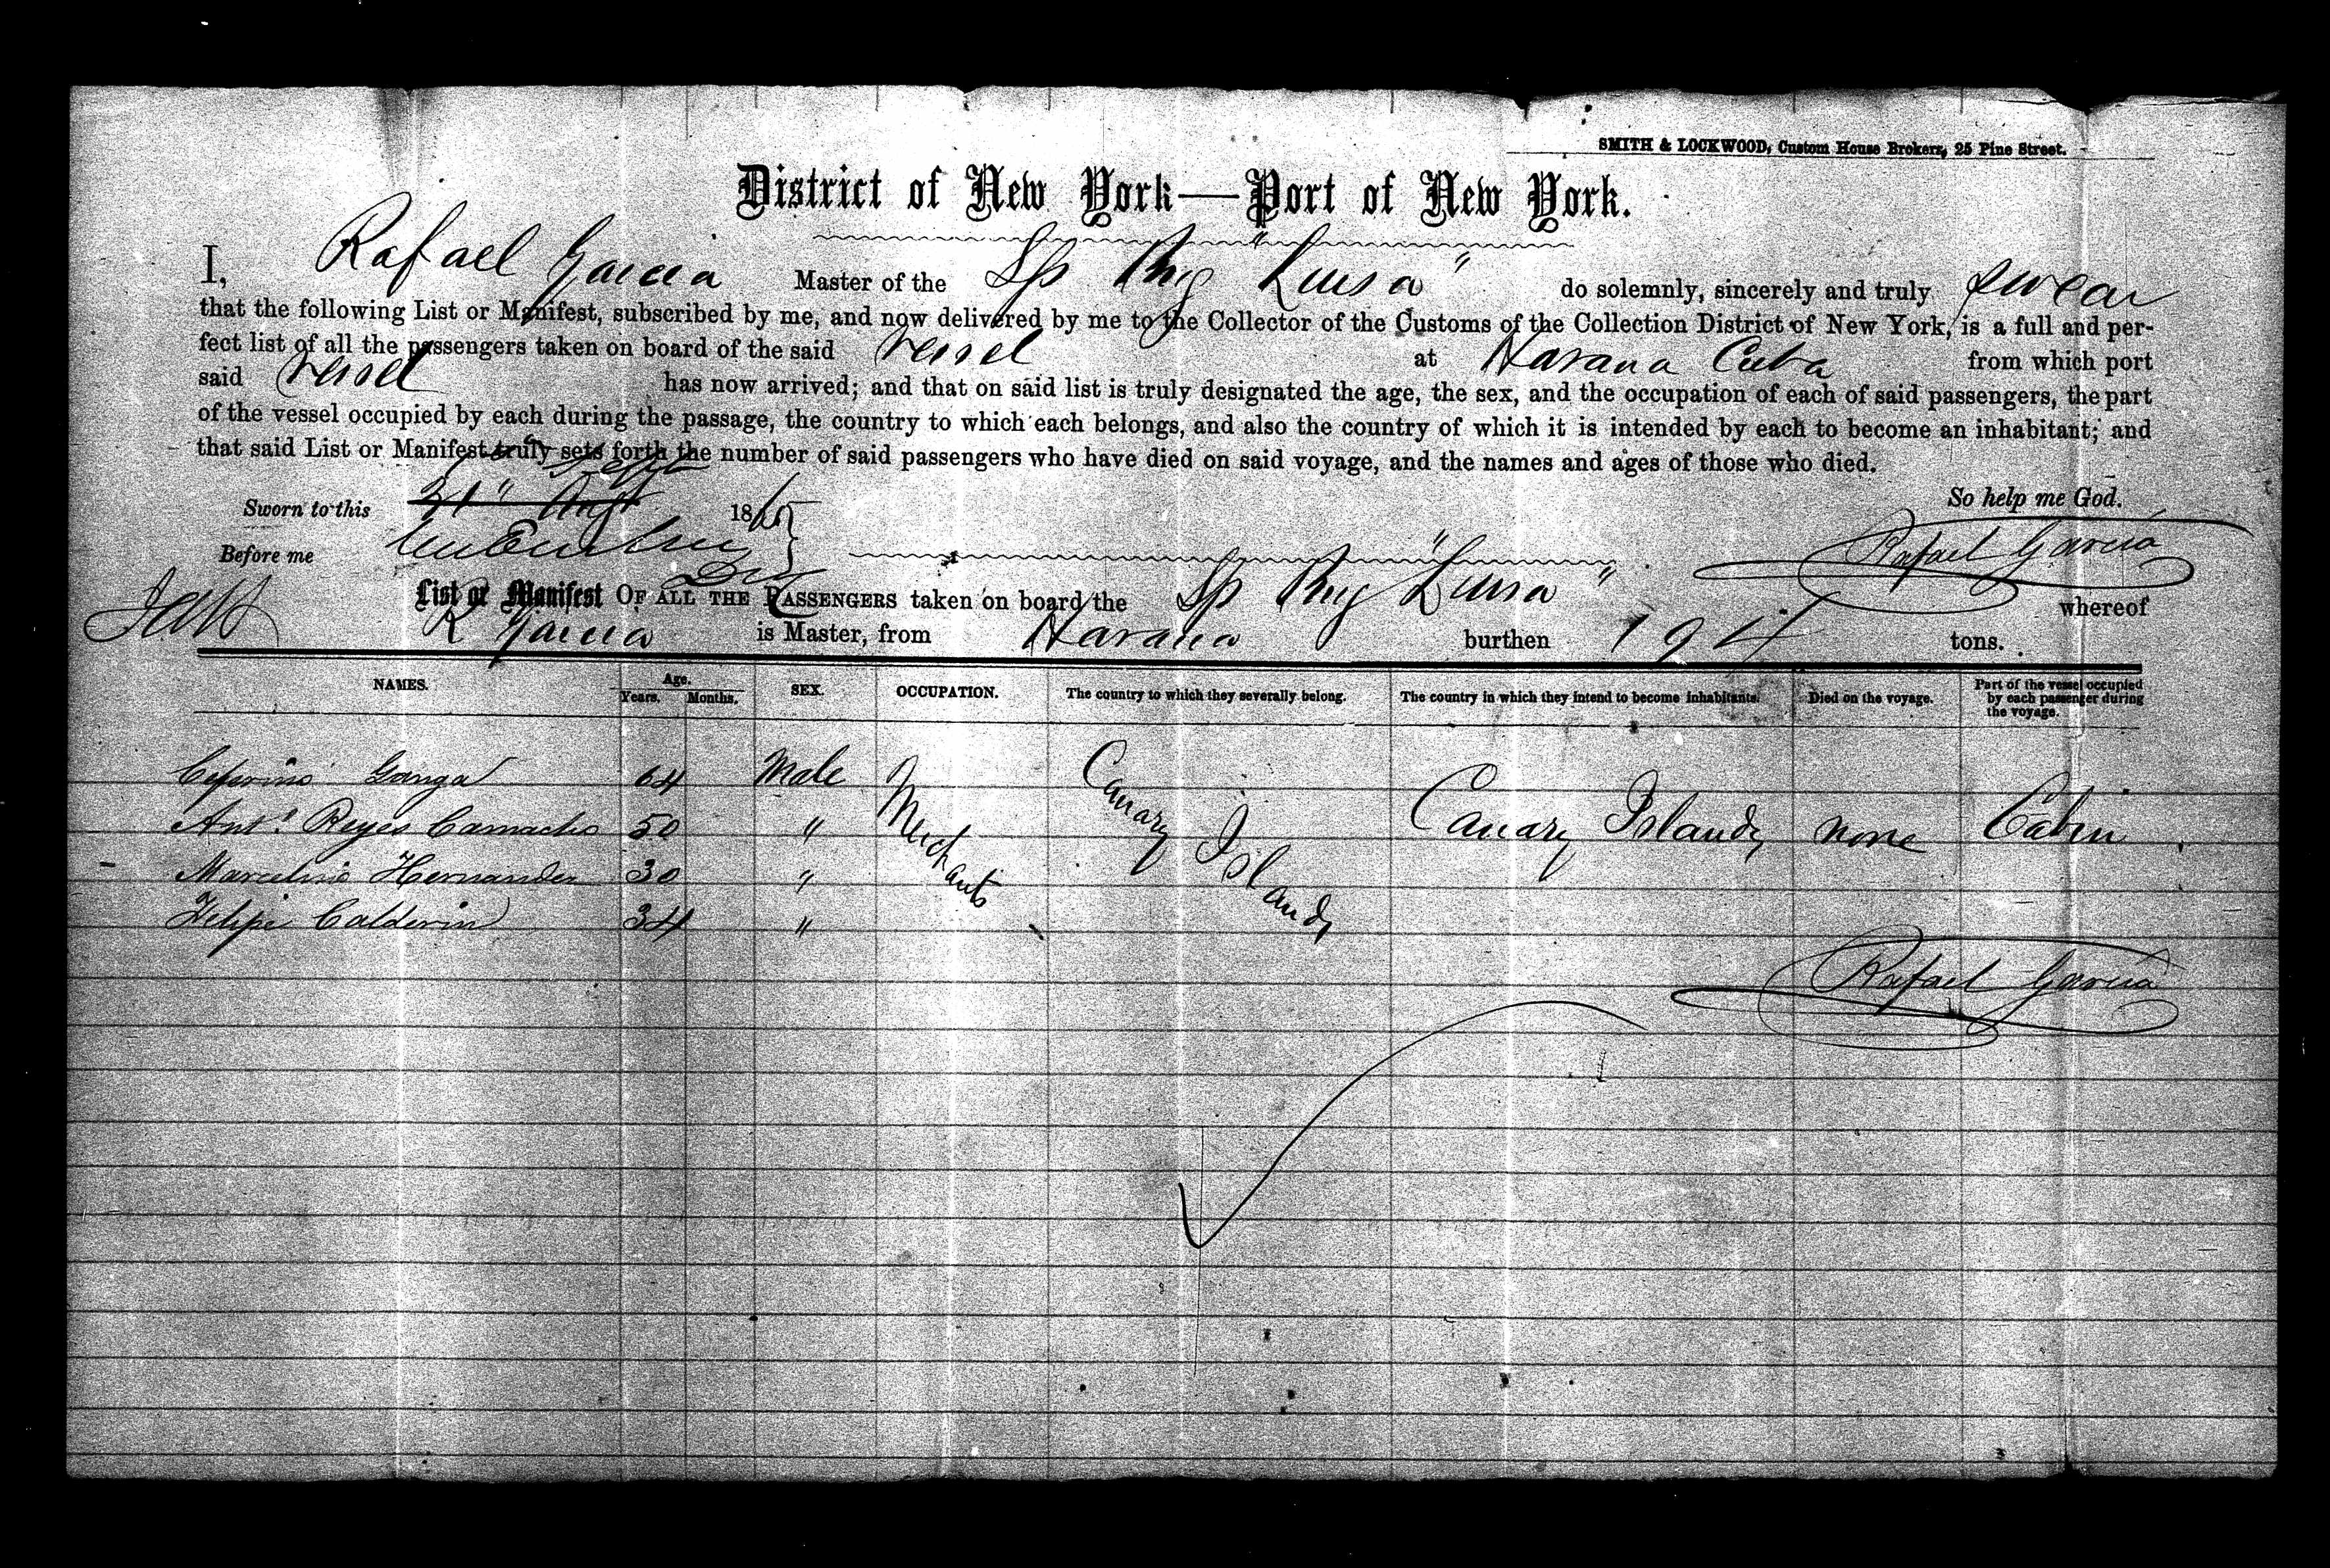 SMITH & LOCKWOOD, Custom House Brokers, 25 Pine Street.
District of New York—Port of New York.
I, Rafael Garcia Master of the Sp Brig "Luisa" do solemnly, sincerely and truly swear
that the following List or Manifest, subscribed by me, and now delivered by me to the Collector of the Customs of the Collection District of New York, is a full and per-
fect list of all the passengers taken on board of the said vessel at Havana Cuba from which port
said vessel has now arrived; and that on said list is truly designated the age, the sex, and the occupation of each of said passengers, the part
of the vessel occupied by each during the passage, the country to which each belongs, and also the country of which it is intended by each to become an inhabitant; and
that said List or Manifest truly sets forth the number of said passengers who have died on said voyage, and the names and ages of those who died.
Sept
Sworn to this 31" Augt 1865 So help me God.
Before me Rafael Garcia
List or Manifest OF ALL THE PASSENGERS taken on board the Sp Brig "Luisa" whereof
R Garcia is Master, from Havana burthen 194 tons.
NAMES. Age. Years. Months. SEX. OCCUPATION. The country to which they severally belong. The country in which they intend to become inhabitants. Died on the voyage. Part of the vessel occupied by each passenger during the voyage.
Ceferino 64 Male Merchants Canary Islands
Anto. Reyes Camacho 50 " Canary Islands none Cabin
Marcelino Hernandez 30 "
Felipe Calderin 34 "
Rafael Garcia